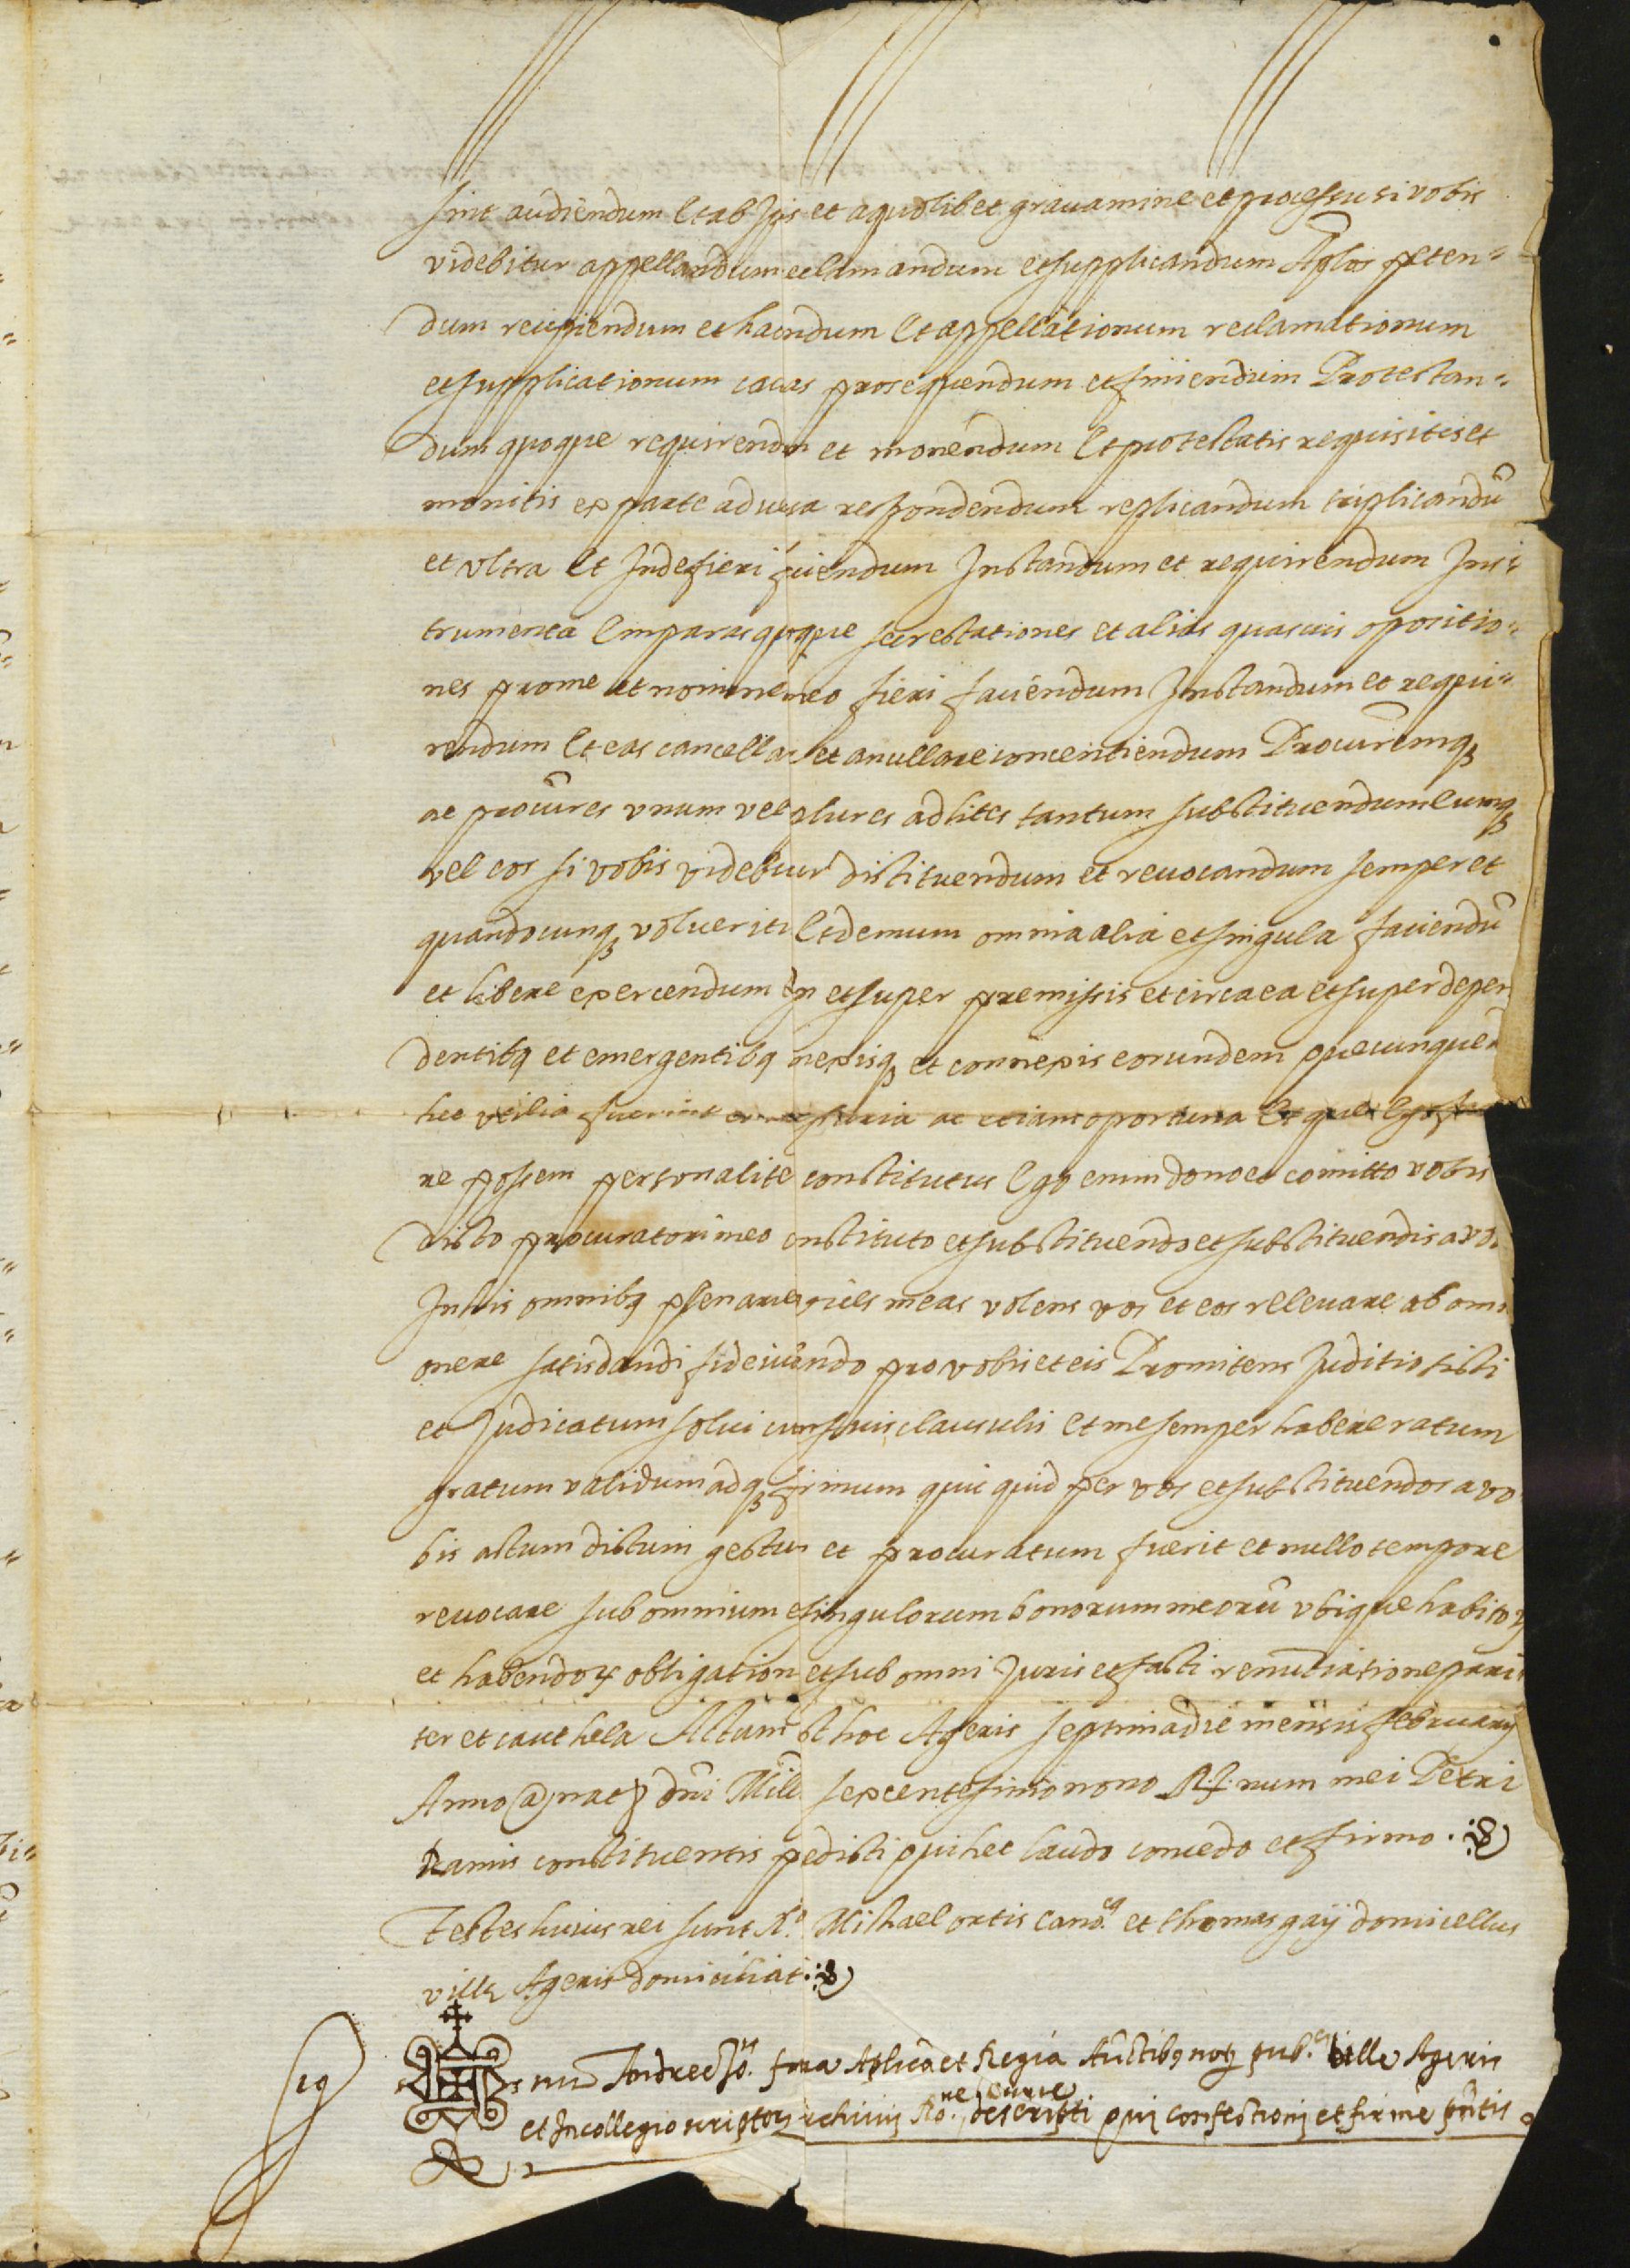 sint audiendum Et ab ipis et a quolibet grauamine et processu si vobis
videbitur appellandum reclamandum et supplicandum Aplos peten=
dum recipiendum et haendum Et appellationum reclamationum
et supplicationum causas prosequendum et finiendum Protestan=
dum quoque requirendum et monendum Et protestatis requisitis et
monitis ex parte aduersa respondendum replicandum triplicandũ
et vltra Et Inde fieri faciendum Instandum et requirendum Ins=
trumenta Emparas quoque secrestationes et alias quasuis opositio=
nes pro me et nomine meo fieri faciendum Instandum et requi=
rendum Et eas cancellar et anullare concentiendum Procuremq
ac procures vnum vel plures ad lites tantum substituendum eumq
vel eos si vobis videbitur distituendum et reuocandum semper et
quandocunq volueritis Et demum omnia alia et singula faciendũ
et libere exercendum In et super premissis et circa ea et super depen
dentibq et emergentibq nexisq et connexis eorundem quecunque
hec vtilia fuerint et necessaria ac etiam oportuna Et que Ego
re possem personaliter constitutus Ego enim dono et comitto vobis
dicto procuratori meo constituto et substituendo et substituendis a vo
In his omnibq plenarie vices meas volens vos et eos releuare ab omni
onere satisdandi fideiubendo pro vobis et eis Promitens Juditio sisti
et Judicatum solui cum suis clausulis Et me semper habere ratum
gratum validum adq firmum quic quid per vos et substituendos a vo
bis actum dictum gestum et procuratum fuerit et nullo tempore
reuocare sub omnium et singulorum bonorum meorũ vbique habitor
et habendor obligatione et sub omni Juris et facti renuntiatione pari
ter et cauthela Actum est hoc Ageris septima die mensis februarij
Anno (a) nat dñi Mill sexcentesimo nono Sig num mei Petri
Ramis constituentis pedicti qui hec laudo concedo et firmo.
Testes huius rei sunt Rdo Michael ortis Canocq et thomas gay domicellus
ville Ageris domiciliat
Sig num Andree Jo. fra Aplica et Regia Auctibq noty pub.ci Ville Ageris
et In collegio scriptor archiuij Ro.ne Curie descripti qui confectionj et firme pñtis